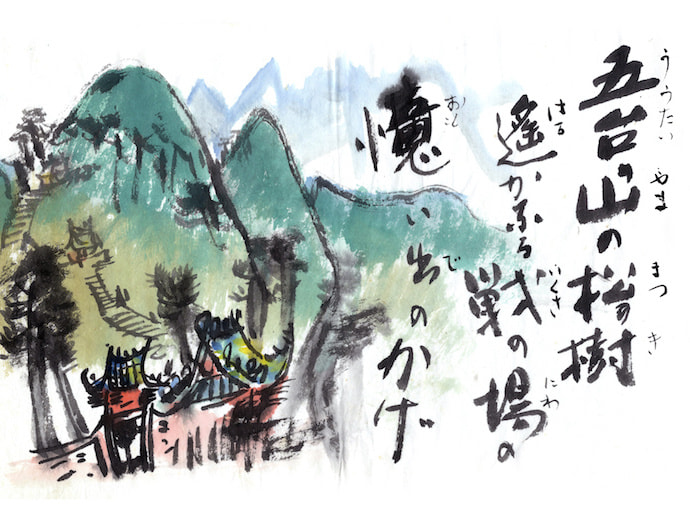 ううたい やま まつ き
五台山の松の樹
はる いくさ にわ
遙かなる戦の場の
おも で
憶い出のかげ